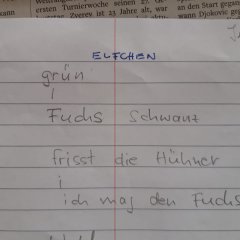 ersten Turnierwoche seinen 27. Ge-
Zverev ist 23 Jahre alt, war
an den Start gegan
wann Djokovic gegen
ELFCHEN
grün
Fuchs Schwanz
frisst die Hühner
ich mag den Fuchs